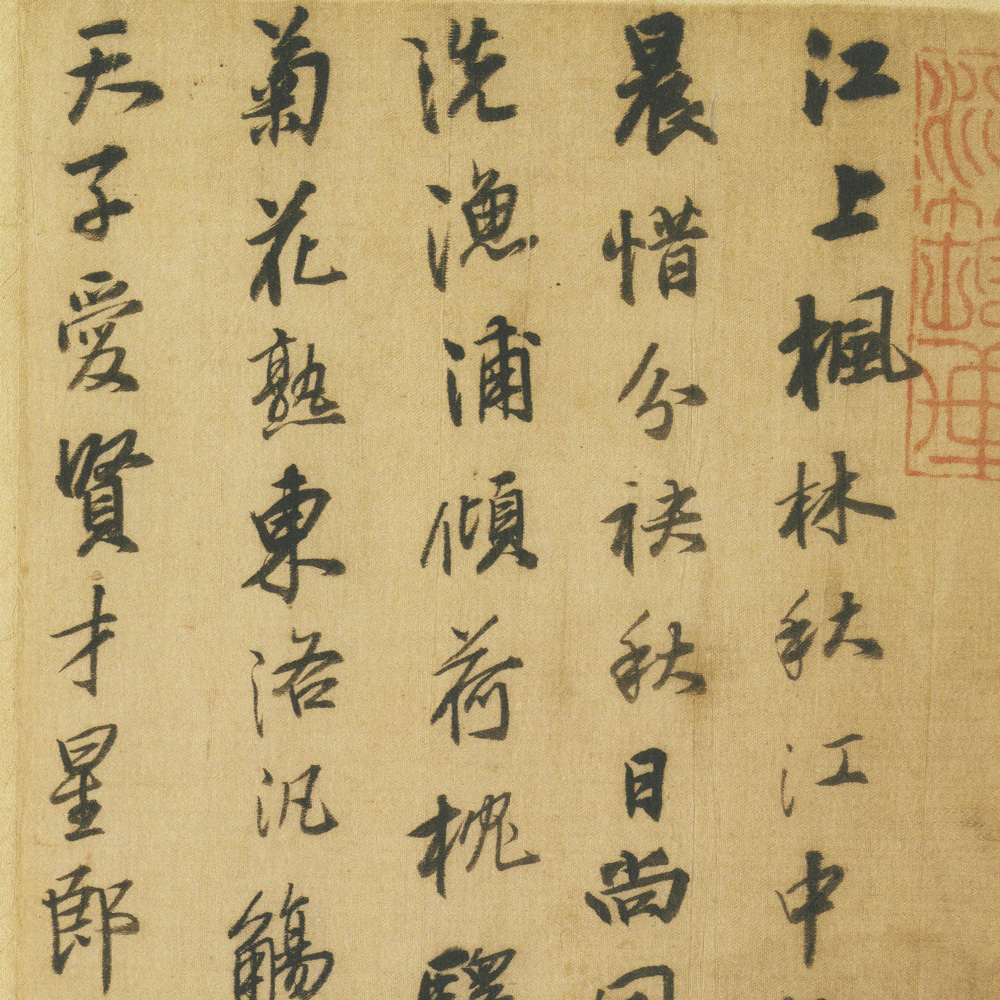 江上楓林秋江中
晨惜分袂秋日尚同
洗漁浦傾荷枕驛
菊花熟東洛汎觴
天子愛賢才星郎